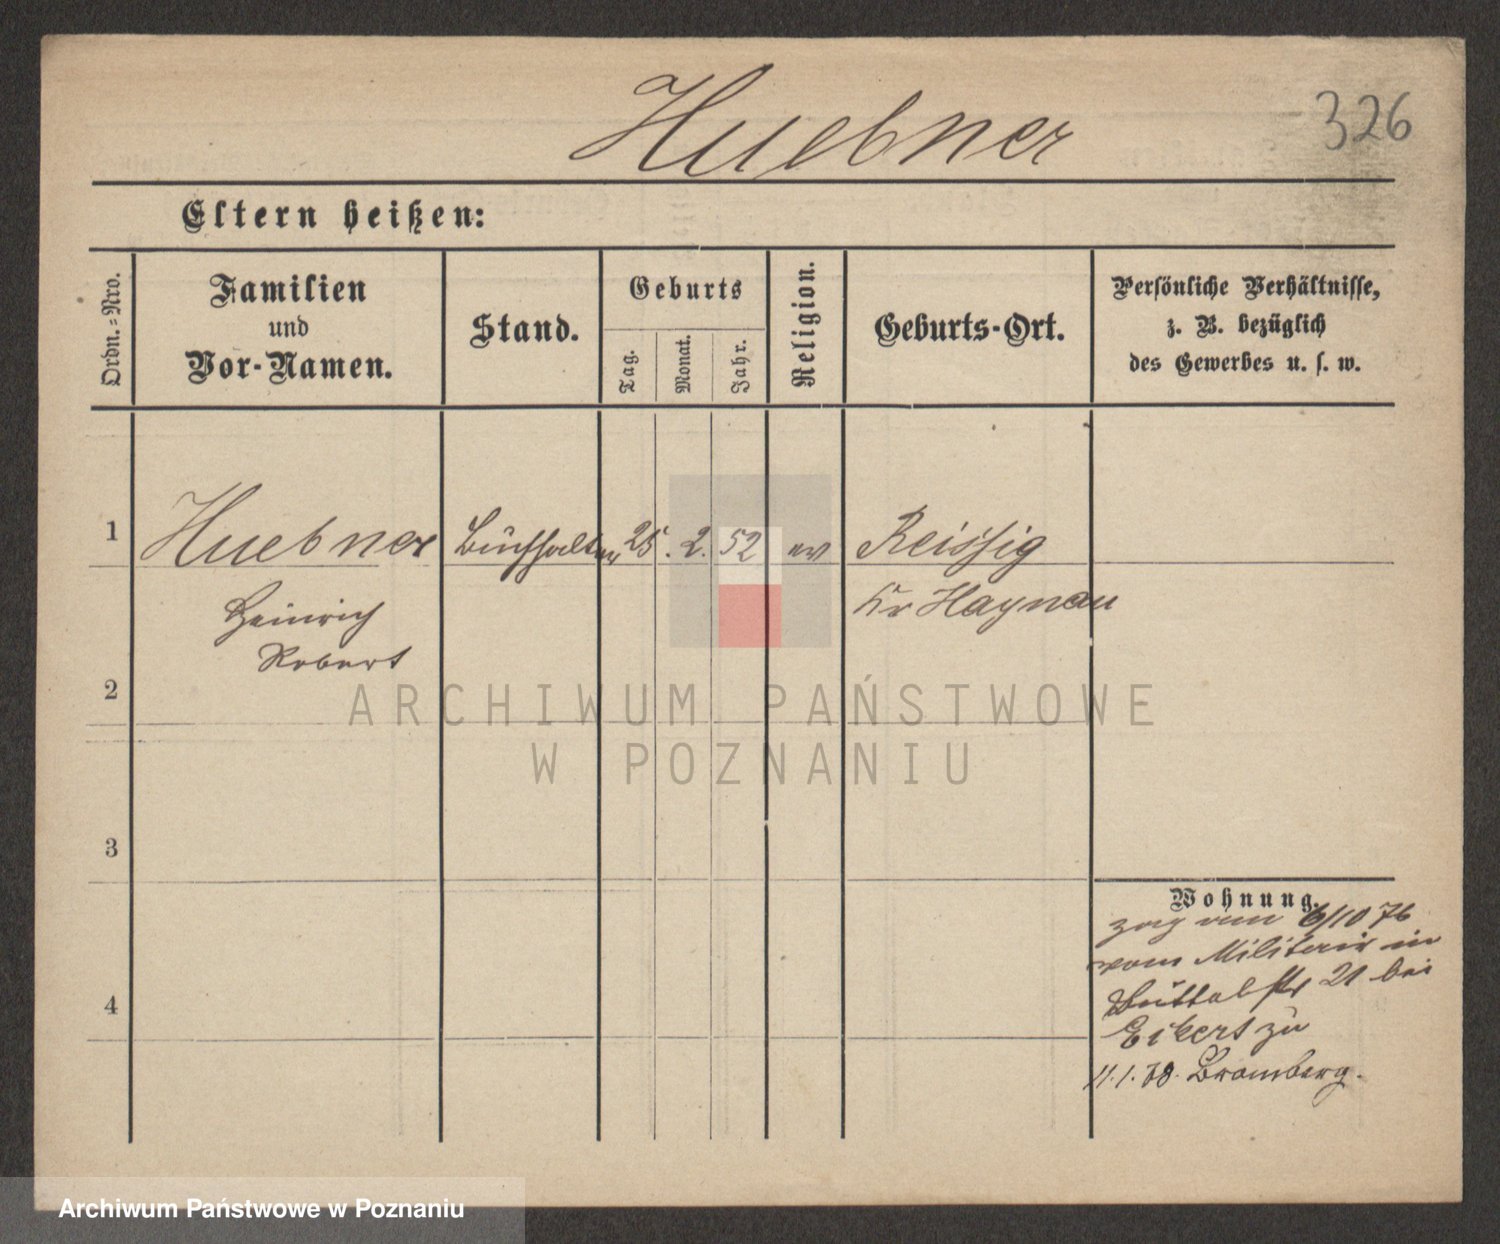 Huebner
326
Eltern heißen:
Ordn.=Nro.
Familien
und
Vor-Namen.
Stand.
Geburts
Tag.
Monat.
Jahr.
Religion.
Geburts-Ort.
Persönliche Verhältnisse,
z. B. bezüglich
des Gewerbes u. s. w.
1 Huebner Buchhalter 25. 2. 52 ev Reissig
Heinrich
Kr Haynau
Robert
2
ARCHIWUM PAŃSTWOWE
W POZNANIU
3
Wohnung.
zog am 6/10 76
vom Militair in
21 bei
4
Eikert zu
11.1.78. Bromberg.
Archiwum Państwowe w Poznaniu